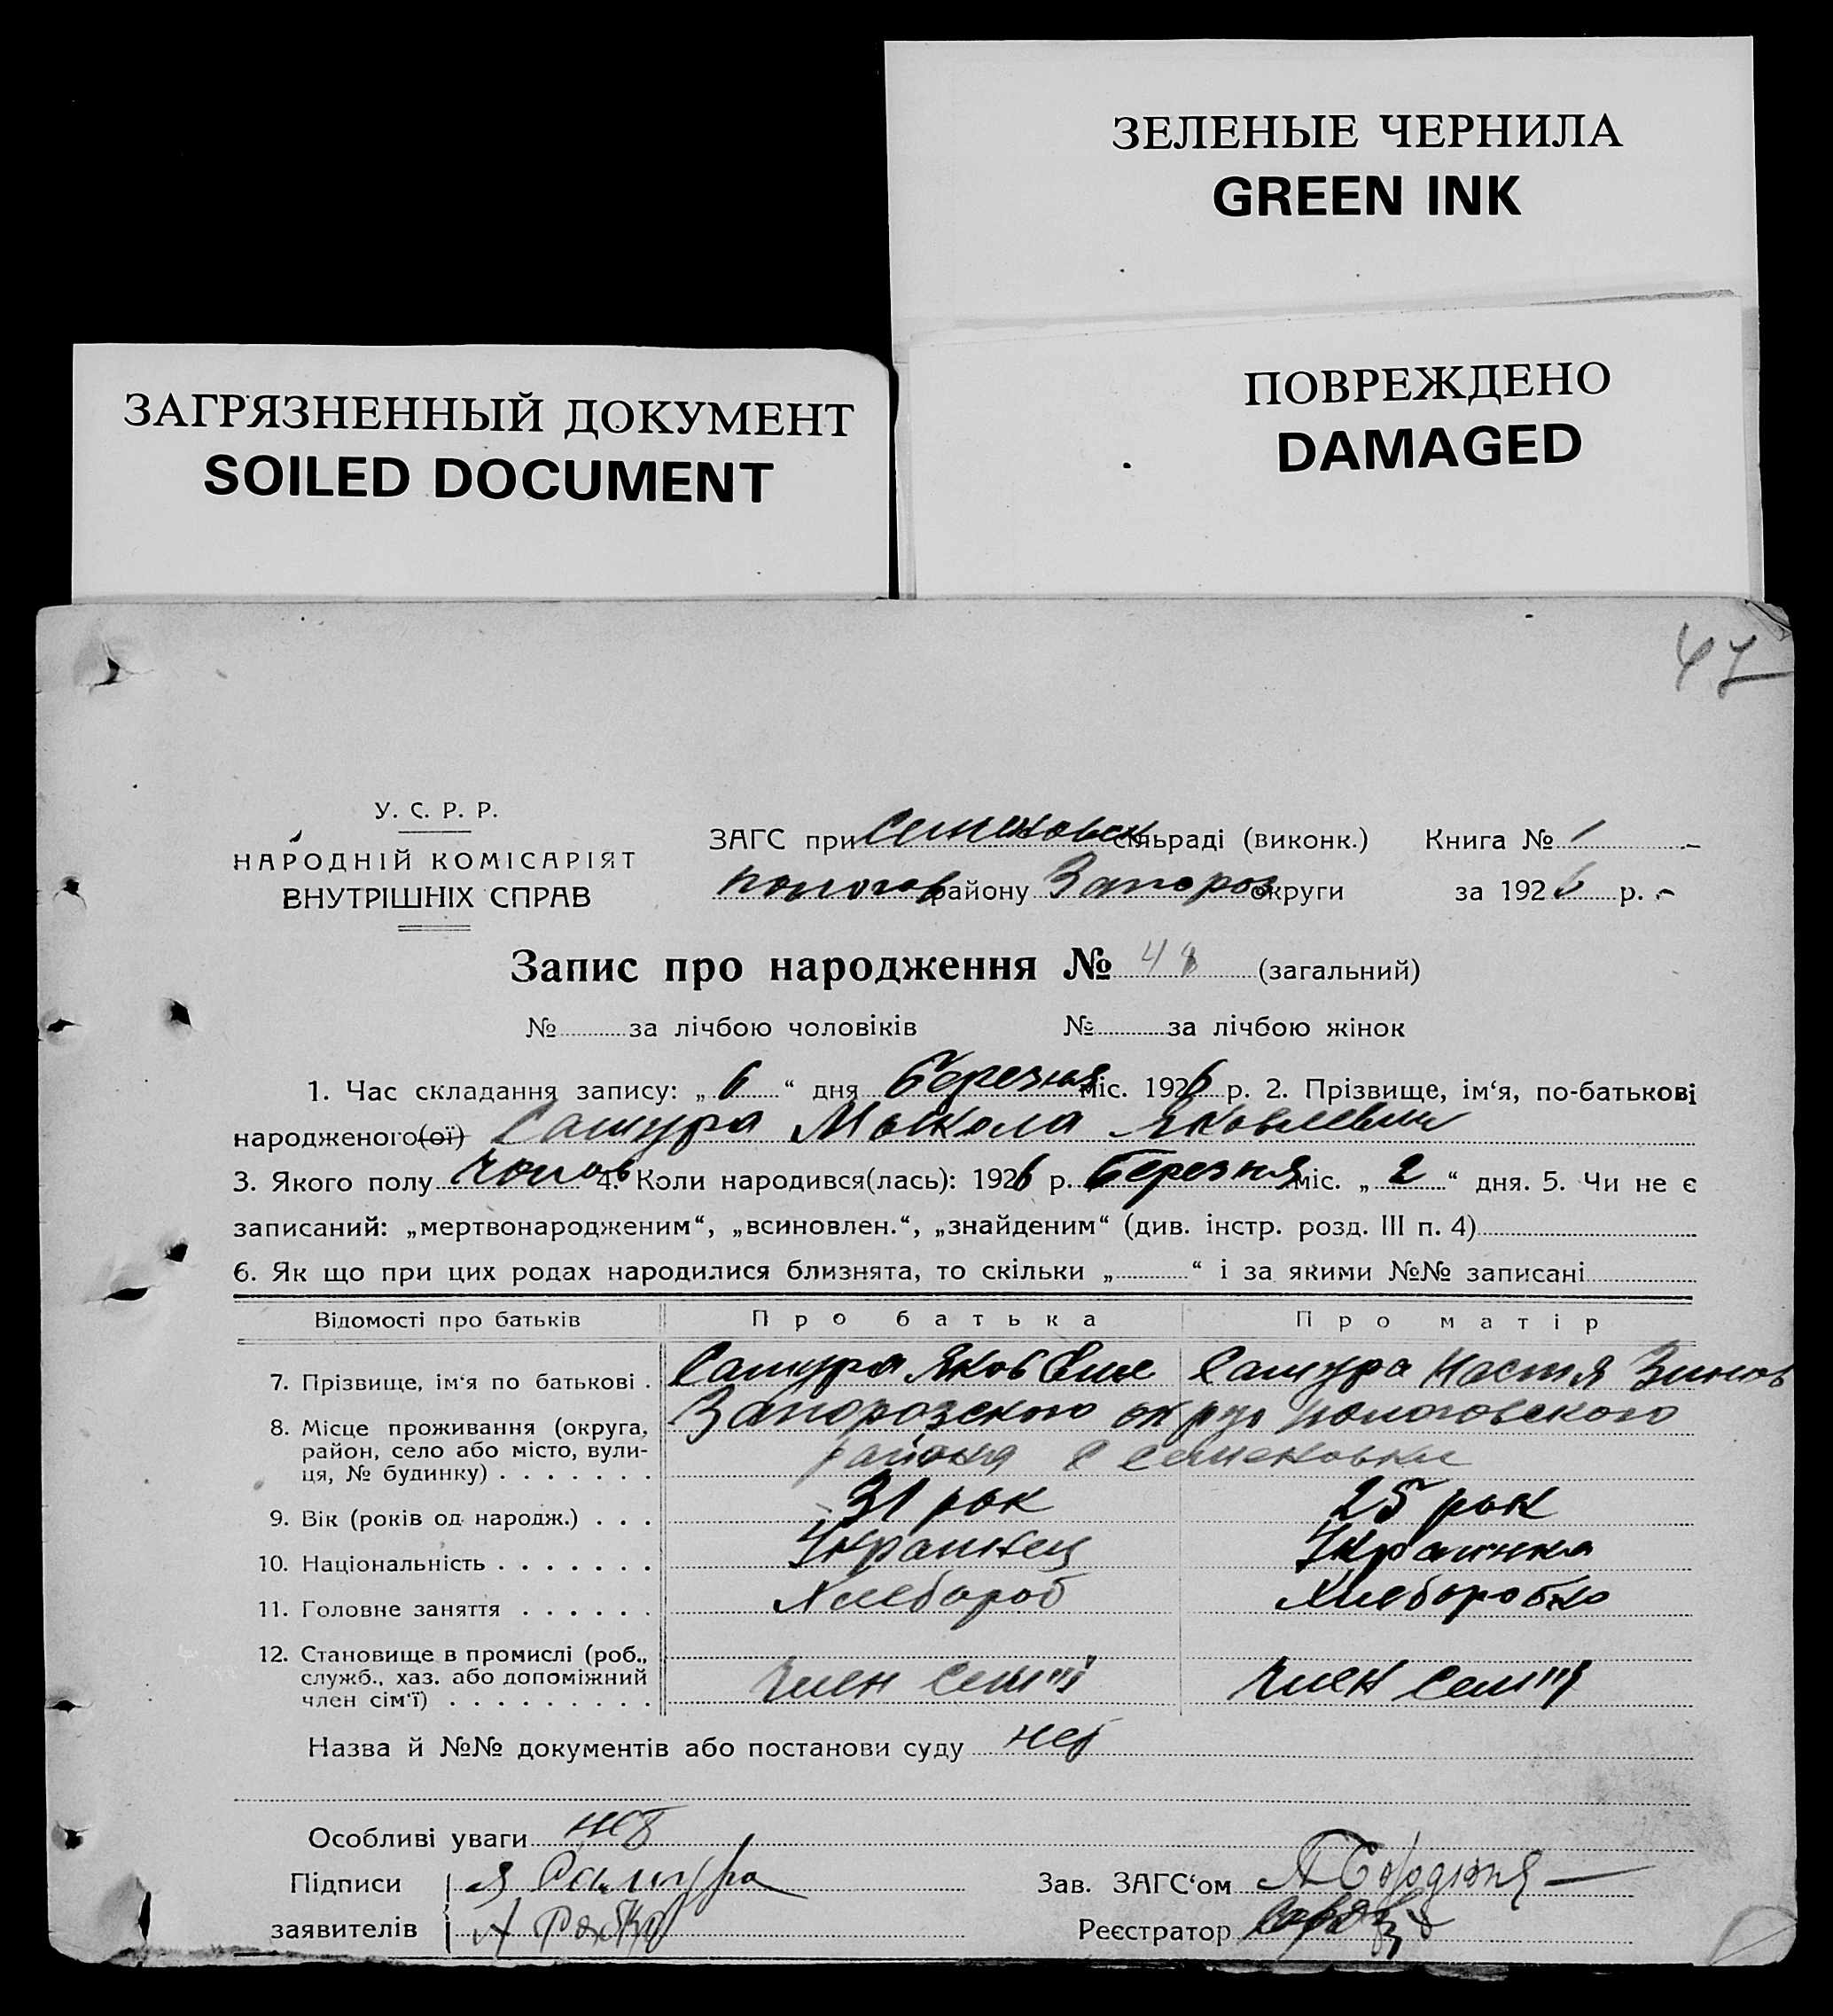 ЗЕЛЕНЫЕ ЧЕРНИЛА
GREEN INK
ПОВРЕЖДЕНО
DAMAGED
ЗАГРЯЗНЕННЫЙ ДОКУМЕНТ
SOILED DOCUMENT
47
У. С. Р. Р.
НАРОДНІЙ КОМІСАРІЯТ
ВНУТРІШНІХ СПРАВ
ЗАГС при Семеновск сільраді (виконк.) Книга № 1
Пологов району Запороз округи за 1926 р.
Запис про народження № 48 (загальний)
№ за лічбою чоловіків № за лічбою жінок
1. Час складання запису: „6“ дня березня міс. 1926 р. 2. Прізвище, ім‘я, по-батькові
народженого(ої) Самура Мыкола Яковлевич
3. Якого полу чолов 4. Коли народився(лась): 1926 р. березня міс. „2“ дня. 5. Чи не є
записаний: „мертвонародженим“, „всиновлен.“, „знайденим“ (див. інстр. розд. III п. 4)
6. Як що при цих родах народилися близнята, то скільки „ “ і за якими №№ записані
Відомості про батьків Про батька Про матір
7. Прізвище, ім‘я по батькові . Самура Яков Самура Настя Зинов
8. Місце проживання (округа, район, село або місто, вулиця, № будинку) . . . . . . . Запорозского округ Пологовского
района с Семеновки
9. Вік (років од народж.) . . . 31 рок 25 рок
10. Національність . . . . . . . Украинец Украинка
11. Головне заняття . . . . . . Хлебороб Хлеборобка
12. Становище в промислі (роб., служб., хаз. або допоміжний член сім‘ї) . . . . . . . . . член семʼї член семʼї
Назва й №№ документів або постанови суду нет
Особливі уваги нет
Підписи Я Самура Зав. ЗАГС‘ом
заявителів Реєстратор